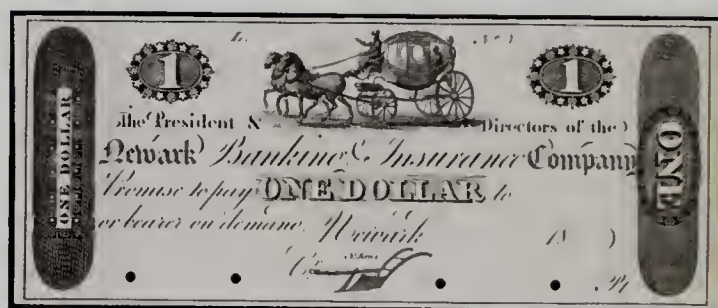 1 1
ONE DOLLAR
The President & Directors of the
Newark Banking & Insurance Company
Promise to pay ONE DOLLAR to
or bearer on demand. Newark 18
ONE